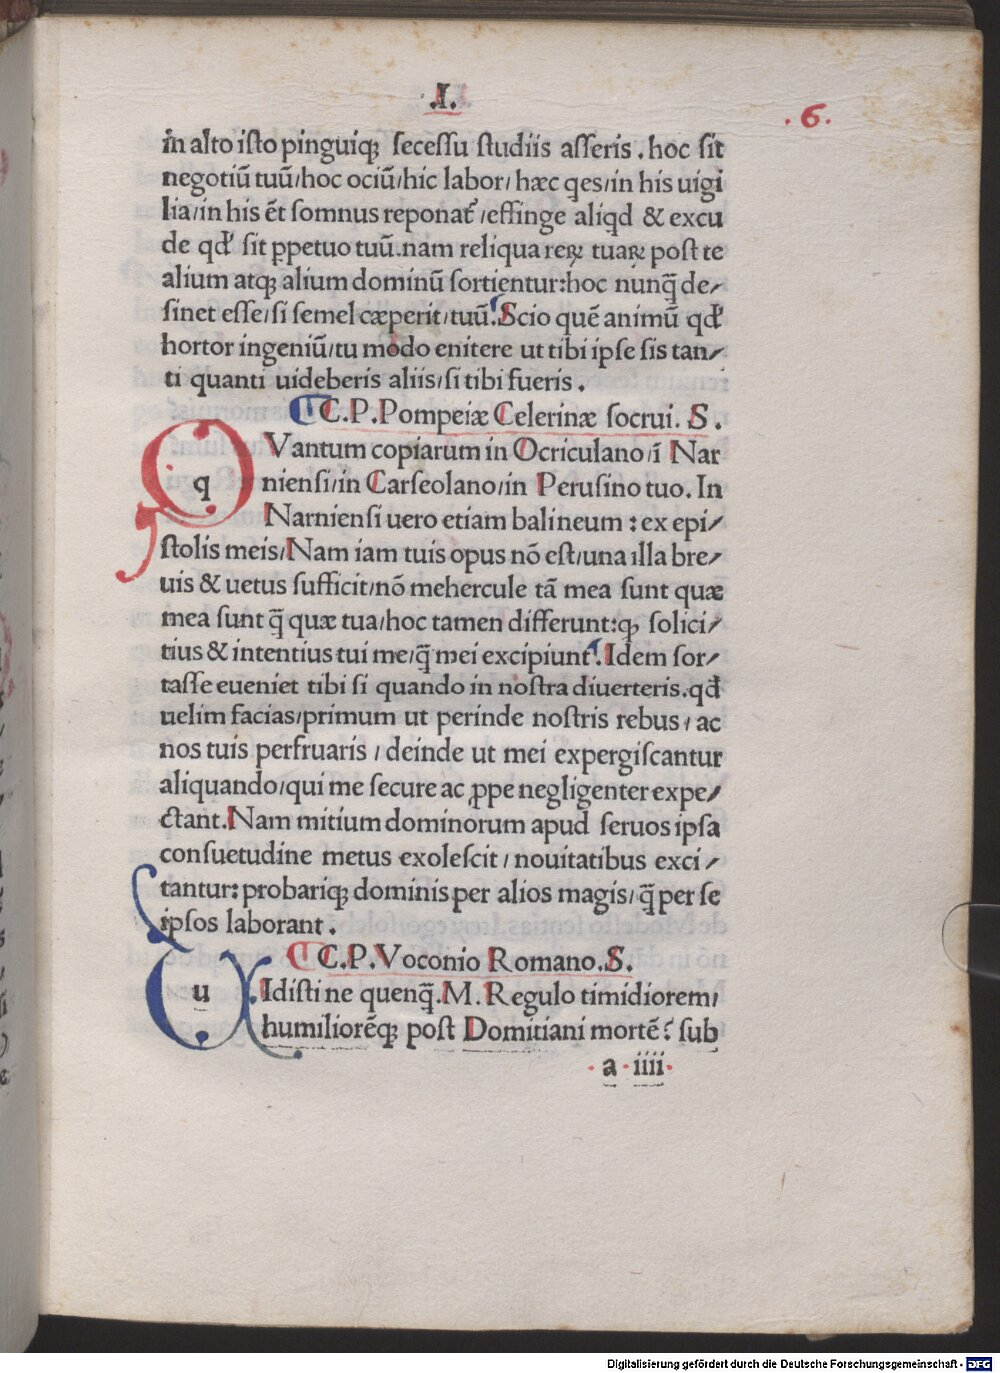 .I.
.6.
in alto isto pinguiqꝫ secessu studiis asseris . hoc sit
negotiū tuū/hoc ociū/hic labor/ hæc qes/in his uigi
lia/in his ēt somnus reponat᷑ /effinge aliqd & excu
de qd' sit ꝑpetuo tuū.nam reliqua reꝝ tuaꝝ post te
alium atqꝫ alium dominū sortientur:hoc nunq̄ de/
sinet esse/si semel cæperit/tuū.Scio quē animū qd'
hortor ingeniū/tu modo enitere ut tibi ipse sis tan/
ti quanti uideberis aliis/si tibi fueris .
C.P.Pompeiæ Celerinæ socrui. S .
q VAntum copiarum in Ocriculano/ī Nar
niensi/in Carseolano/in Perusino tuo. In
Narniensi uero etiam balineum : ex epi/
stolis meis/Nam iam tuis opus nō est/una illa bre/
uis & uetus sufficit/nō mehercule tā mea sunt quæ
mea sunt q̄ quæ tua/hoc tamen differunt:qꝫ solici/
tius & intentius tui me/q̄ mei excipiunt.Idem for/
tasse eueniet tibi si quando in nostra diuerteris.qd
uelim facias/primum ut perinde nostris rebus/ ac
nos tuis perfruaris / deinde ut mei expergiscantur
aliquando/qui me secure ac ꝓpe negligenter expe/
ctant.Nam mitium dominorum apud seruos ipsa
consuetudine metus exolescit / nouitatibus exci /
tantur:probariqꝫ dominis per alios magis/q̄ per se
ipsos laborant .
C.P.Voconio Romano.S.
u Idisti ne quenq̄.M. Regulo timidiorem/
humiliorēqꝫ post Domitiani mortē? sub
a iiii
Digitalisierung gefördert durch die Deutsche Forschungsgemeinschaft - DFG